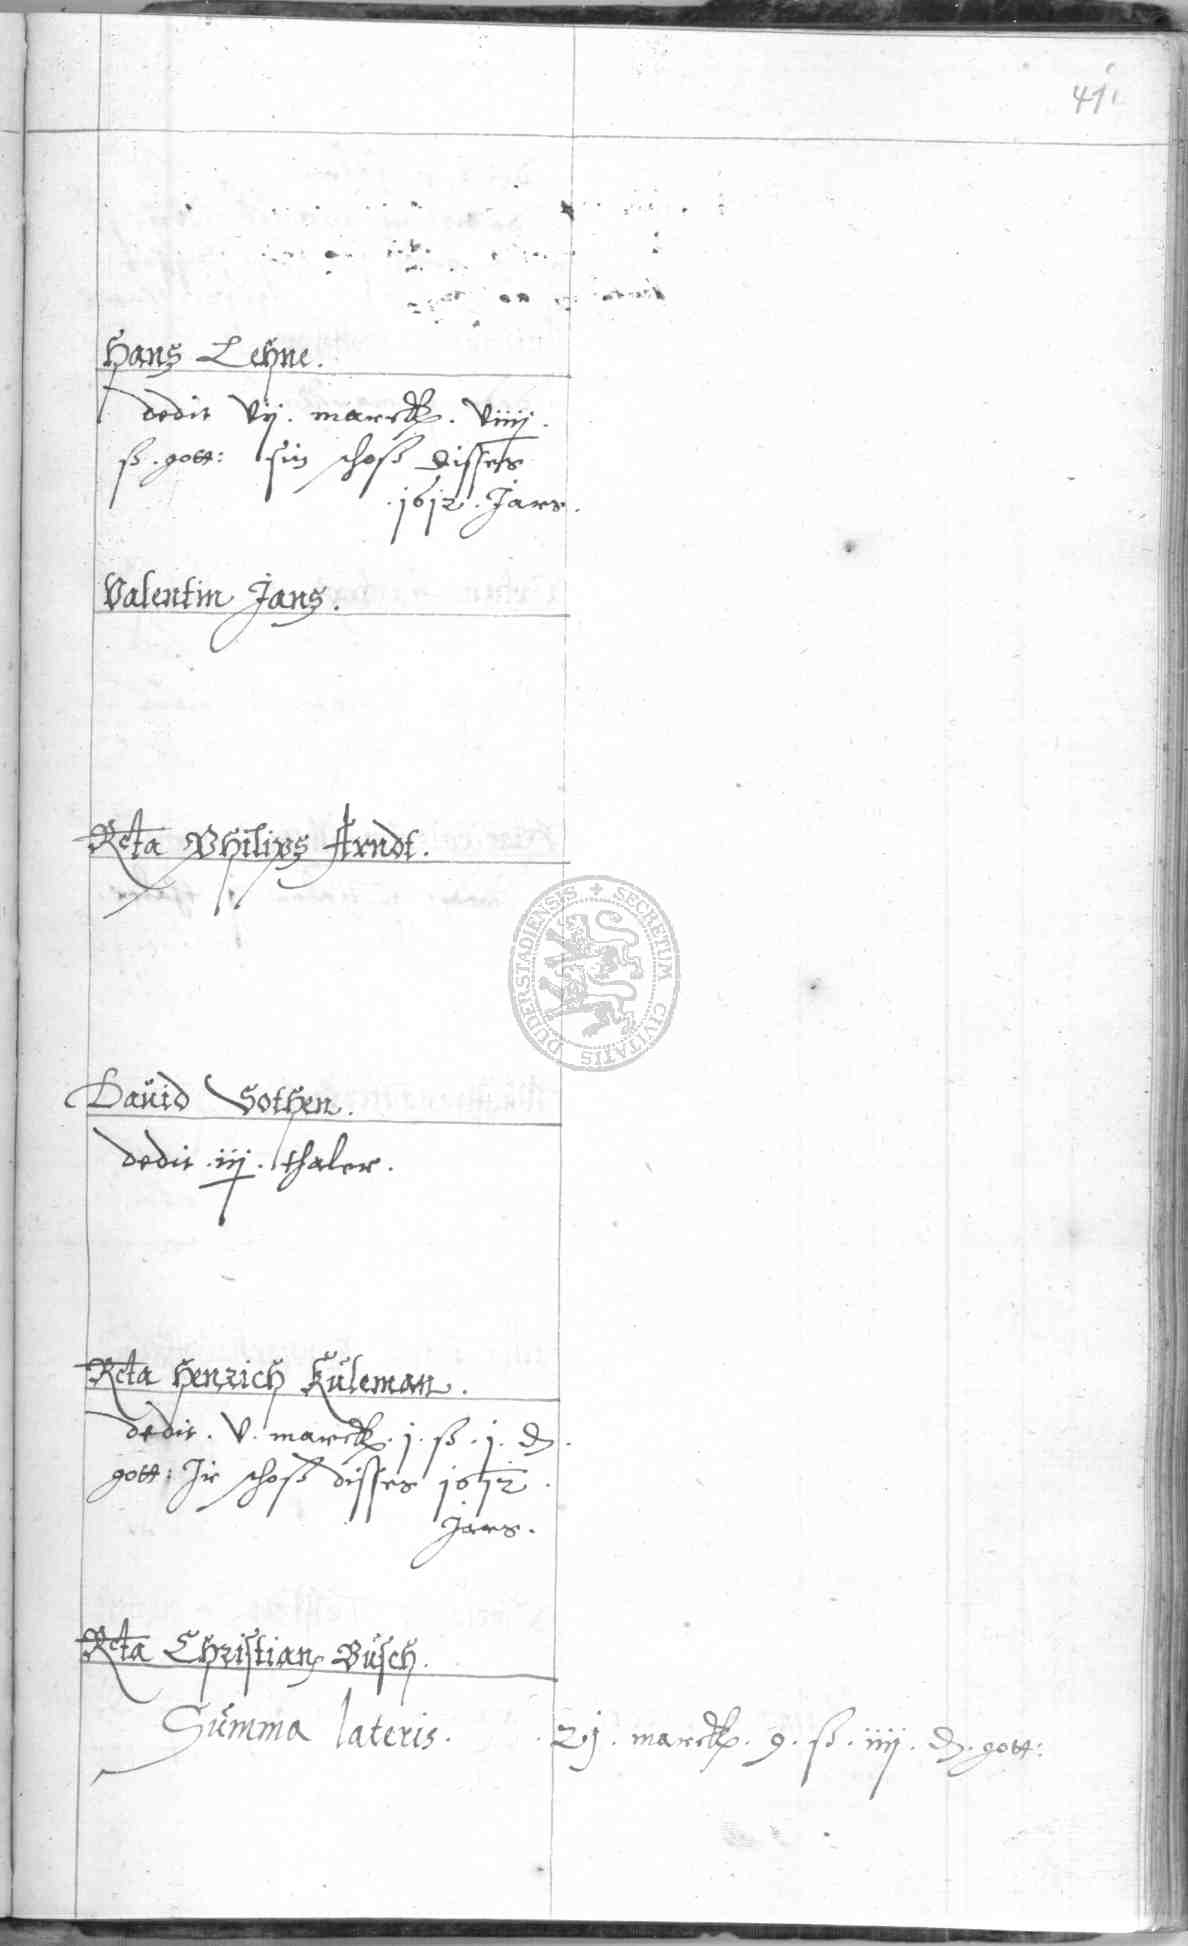 41
Hans Lehne.
dedit vij. marck. viiij.
ß. gott: sin schoß disses
.1612. Jars.
Valentin Jans.
Rcta Philips Arndt.
SECRETUM CIVITATIS DUDERSTADIENSIS
Dauid Sothen.
dedit .iij. thaler.
Rcta Henrich Kuleman.
dedit. v. marck. j. ß. j. d.
gott: Jr schoß disses 1612.
Jars.
Rcta Christian Busch.
Summa lateris. . 2j. marck. 9. ß. iiij. d. gott: